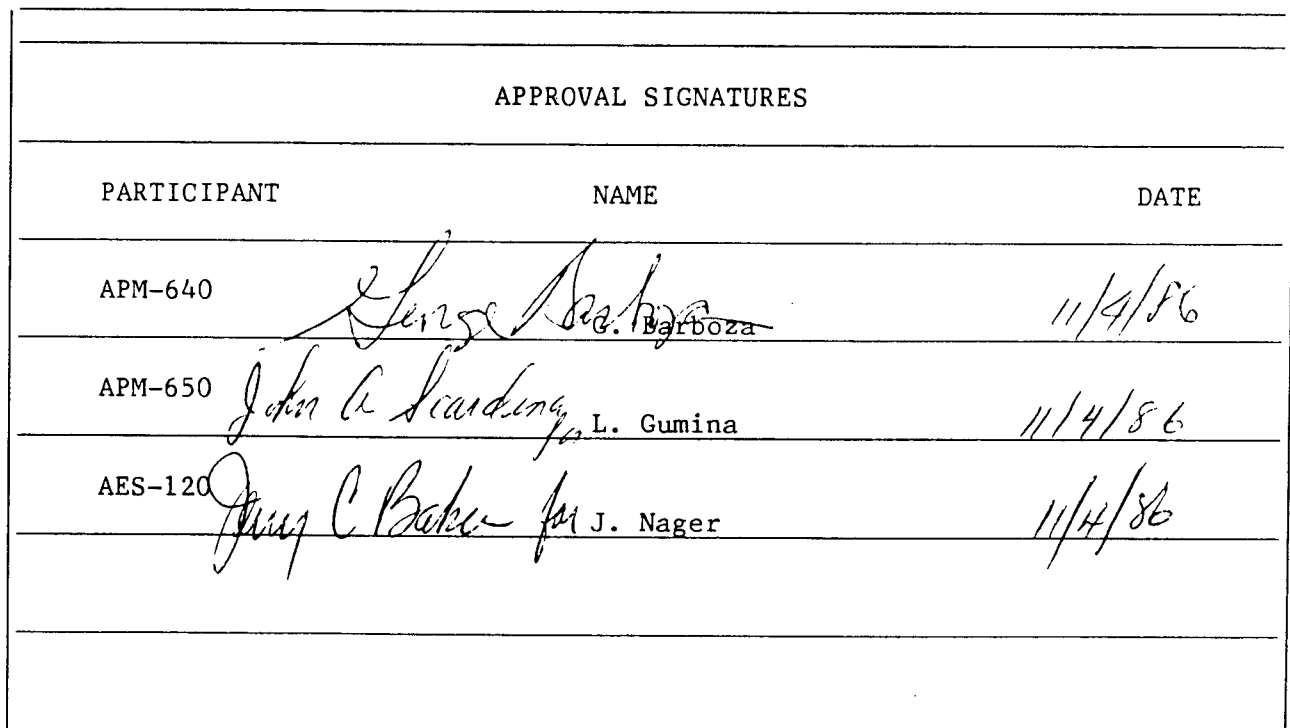 APPROVAL SIGNATURES
PARTICIPANT NAME DATE
APM-640 George Barboza G. Barboza 11/4/86
APM-650 John A Scardina for L. Gumina 11/4/86
AES-120 Jerry C Baker for J. Nager 11/4/86